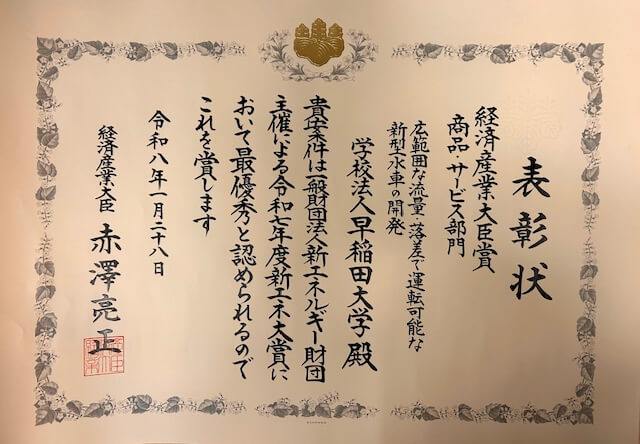 表彰状
経済産業大臣賞
商品・サービス部門
広範囲な流量・落差で運転可能な
新型水車の開発
学校法人早稲田大学 殿
貴案件は一般財団法人新エネルギー財団
主催による令和七年度新エネ大賞に
おいて最優秀と認められるので
これを賞します
令和八年一月二十八日
経済産業大臣 赤澤亮正